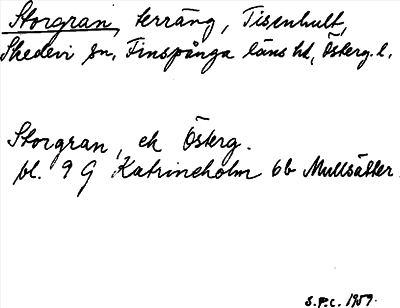 Storgran, terräng, Tisenhult,
Skedevi sn, Finspånga läns hd, Österg. l.
Storgran, ek Österg.
bl. 9 G Katrineholm 6b Mullsätter.
S.P.C. 1959.